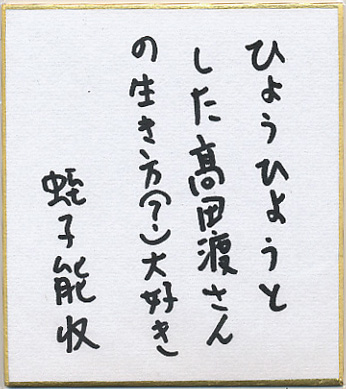 ひょうひょうと
した高田渡さん
の生き方(アン)大好き
蛭子能収